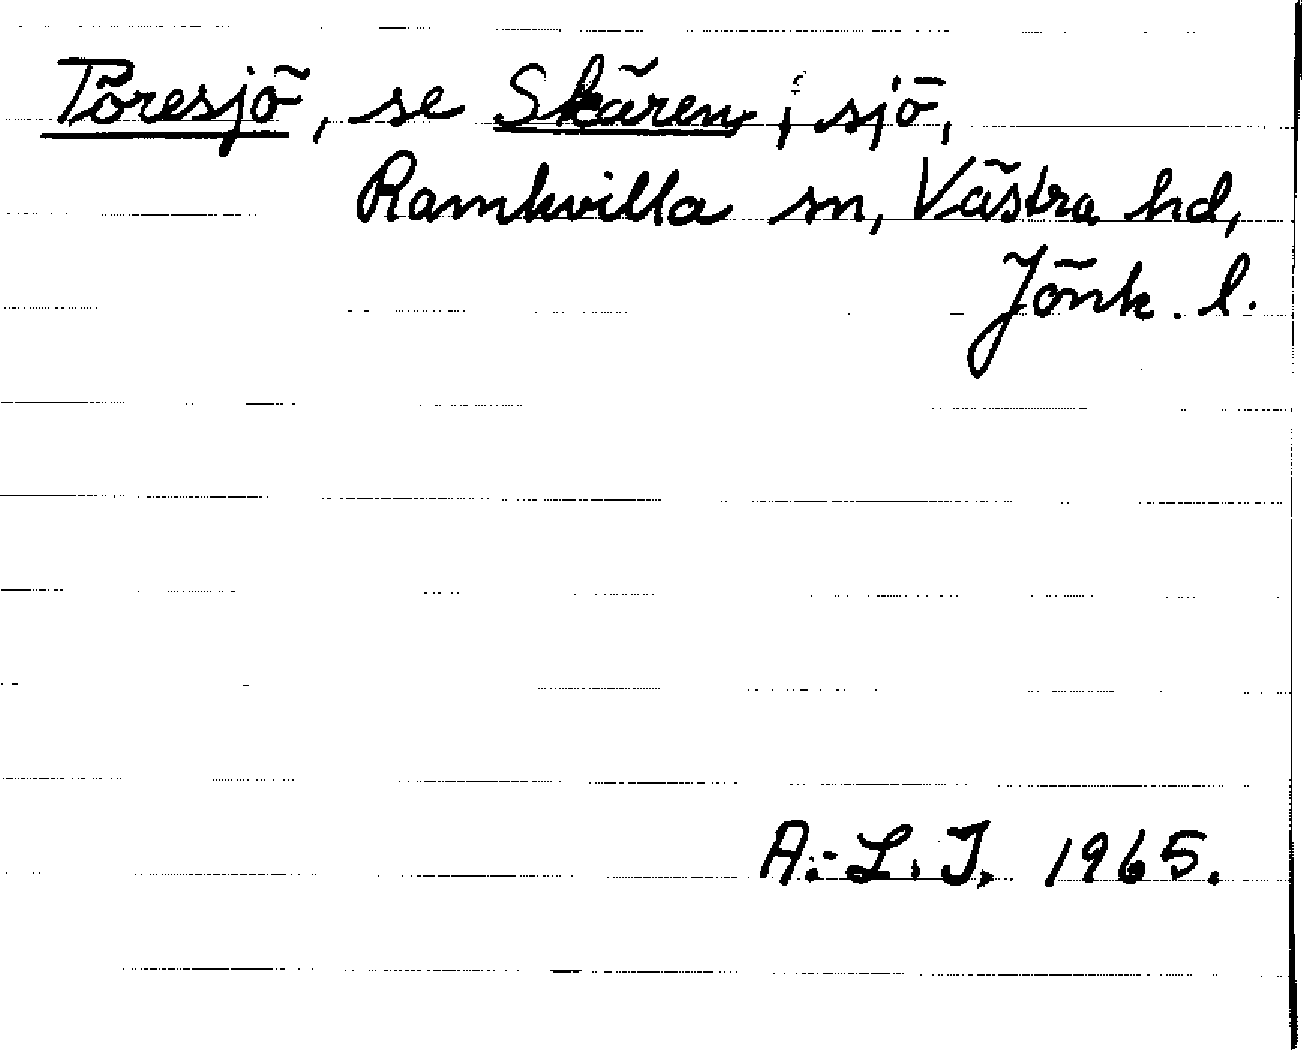 Töresjö, se Skären, sjö,
Ramkvilla sn, Västra hd,
Jönk. l.
A.-L. J. 1965.